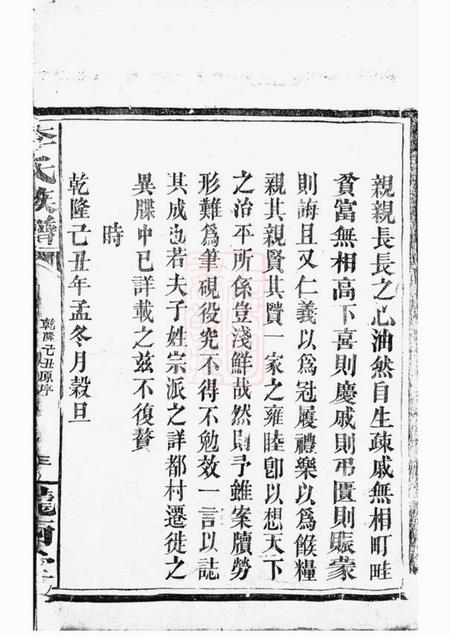 親親長長之心油然自生疎戚無相町畦
貧富無相高下喜則慶戚則弔匱則賑蒙
則誨且又仁義以為冠履禮樂以為餱糧
親其親賢其賢一家之雍睦卽以想天下
之治平所係豈淺鮮哉然則予雖案牘勞
形難為筆硯役究不得不勉效一言以誌
其成也若夫子姓宗派之詳都村遷徙之
異牒中已詳載之茲不復贅
時
乾隆己丑年孟冬月穀旦
李氏族譜
乾隆己丑原序
三
隴西堂